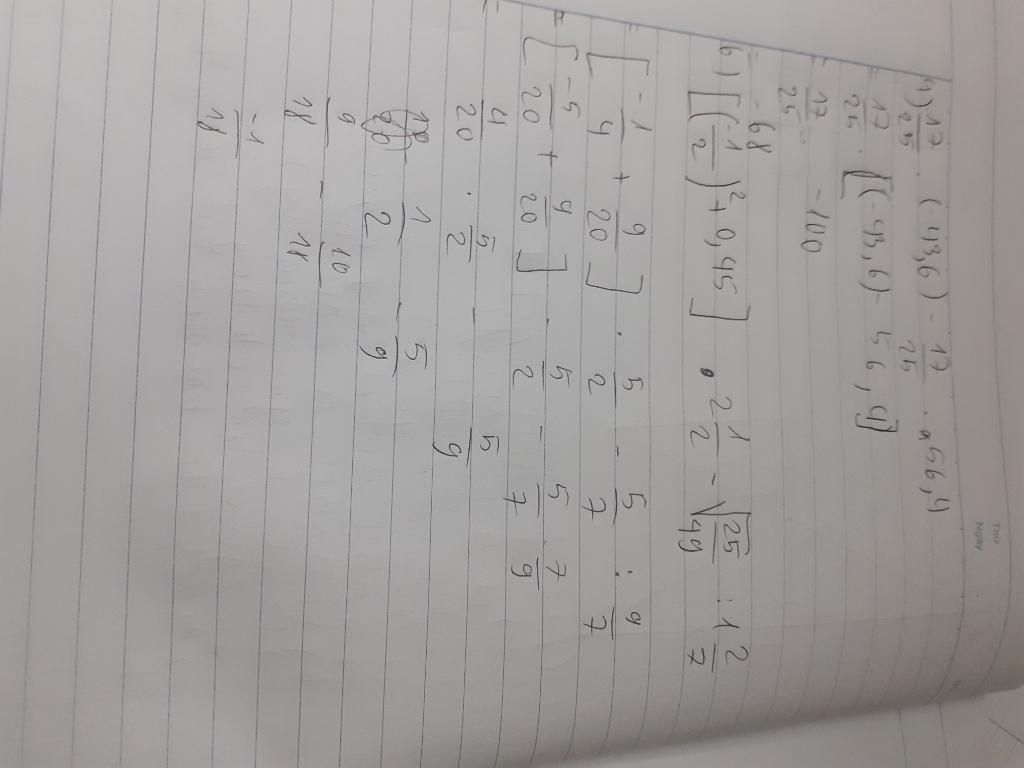 Thứ
Ngày
a) 17/25 (-43,6) - 17/25 . 56,4
= 17/25 . [(-43,6) - 56,4]
= 17/25 . -100
= -68
b) [(-1/2)² + 0,45] . 2 1/2 - √25/49 : 1 2/7
= [-1/4 + 9/20] . 5/2 - 5/7 : 9/7
= [-5/20 + 9/20] . 5/2 - 5/7 7/9
= 4/20 . 5/2 - 5/9
1/2 - 5/9
9/18 - 10/18
-1/18